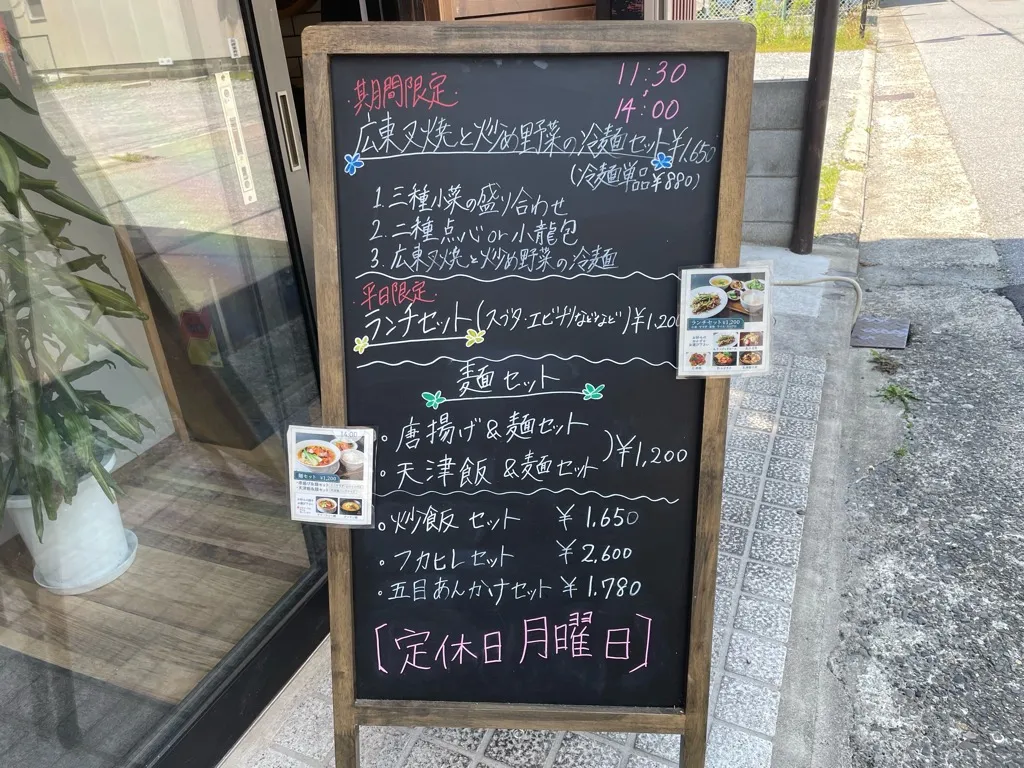 期間限定
11:30
14:00
広東叉焼と炒め野菜の冷麺セット¥1.650
(冷麺単品¥880)
1.三種小菜の盛り合わせ
2.二種点心or小龍包
3.広東叉焼と炒め野菜の冷麺
平日限定
ランチセット(スブタ・エビチリなどなど)¥1,200
ランチセット¥1,200
麺セット
・唐揚げ&麺セット
・天津飯&麺セット
)¥1,200
麺セット ¥1,200
・炒飯セット ¥1.650
・フカヒレセット ¥2.600
・五目あんかけセット ¥1.780
[定休日月曜日]